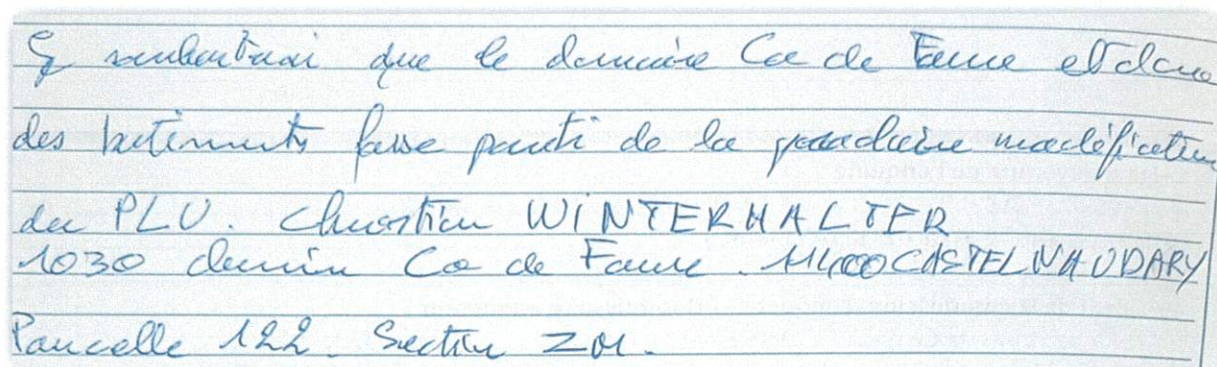 Je souhaiterai que le domaine Ca de Faure et donc
des batiments fasse parti de la prochaine modification
du PLU. Christian WINTERHALTER
1030 chemin Ca de Faure. 11400 CASTELNAUDARY
Parcelle 122. Section ZM.